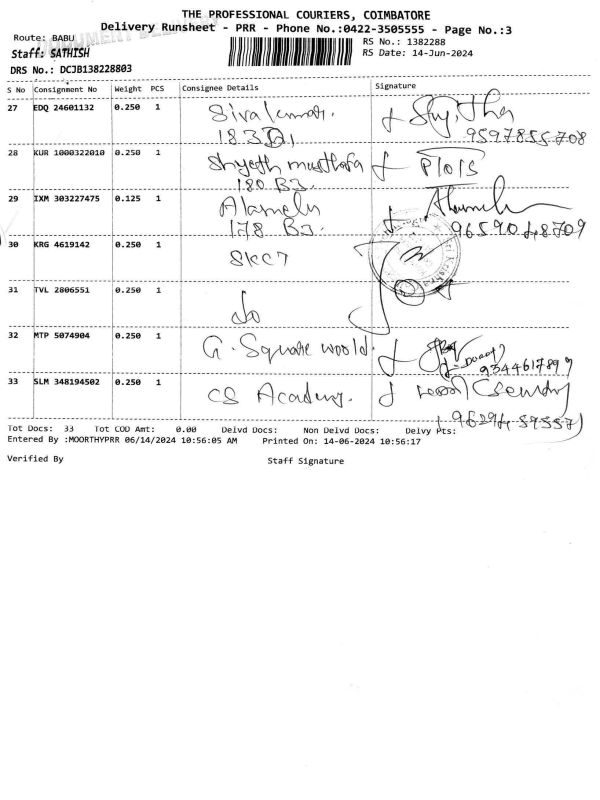 THE PROFESSIONAL COURIERS, COIMBATORE
Delivery Runsheet - PRR - Phone No.:0422-3505555 - Page No.:3
Route: BABU
RS No.: 1382288
Staff: SATHISH
RS Date: 14-Jun-2024
DRS No.: DCJB138228803
S No Consignment No Weight PCS Consignee Details Signature
27 EDQ 24601132 0.250 1 Sivakumar.
183 D1 9597855708
28 KUR 1000322010 0.250 1
180 B3.
29 IXM 303227475 0.125 1 Alamelu
178 B3.
30 KRG 4619142 0.250 1 SKCT
31 TVL 2806551 0.250 1 do
32 MTP 5074904 0.250 1 G. Square world.
33 SLM 348194502 0.250 1 CS Academy.
Tot Docs: 33 Tot COD Amt: 0.00 Delvd Docs: Non Delvd Docs: Delvy Pts:
Entered By :MOORTHYPRR 06/14/2024 10:56:05 AM Printed On: 14-06-2024 10:56:17
Verified By Staff Signature